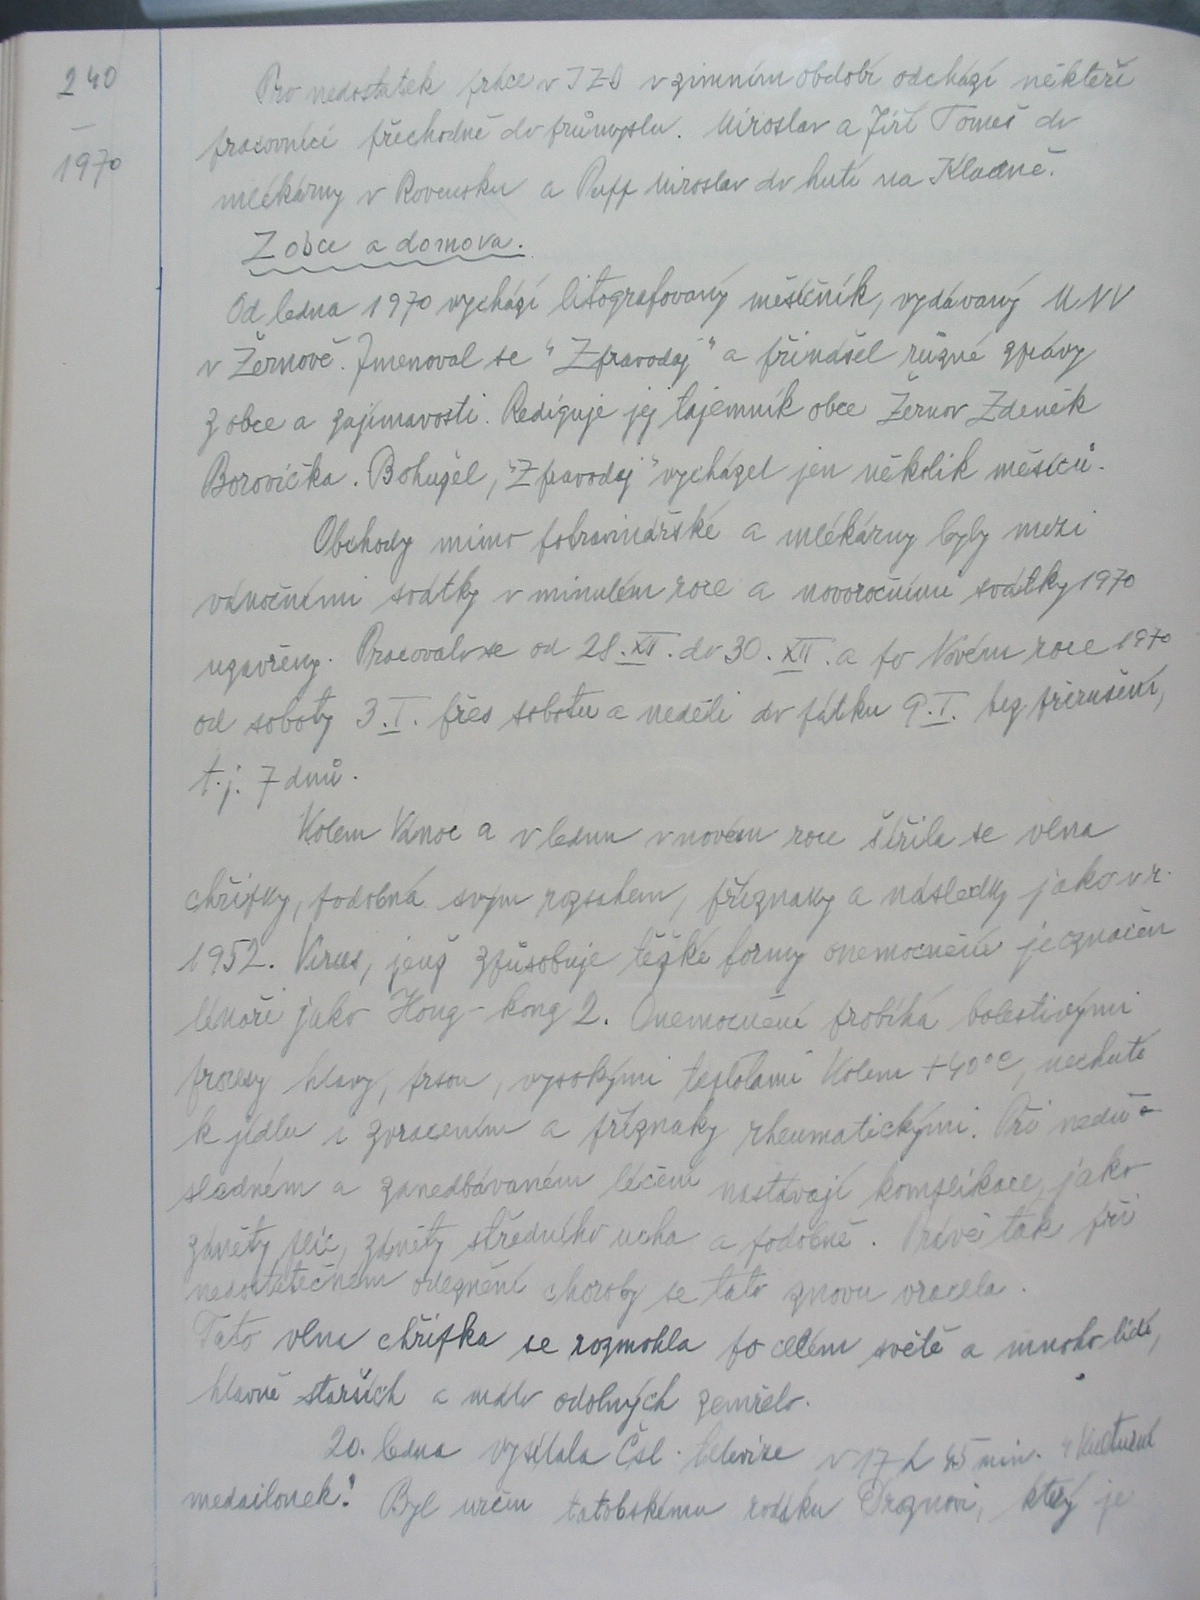 240
—
1970
Pro nedostatek práce v JZD v zimním období odchází někteří
pracovníci přechodně do průmyslu. Miroslav a Jiří Tomeš do
mlékárny v Rovensku a Puff Miroslav do hutí na Kladně.
Z obce a domova.
Od ledna 1970 vychází litografovaný měsíčník, vydávaný MNV
v Žernově. Jmenoval se "Zpravodaj" a přinášel různé zprávy
z obce a zajímavosti. Rediguje jej tajemník obce Žernov Zdeněk
Borovička. Bohužel, "Zpravodaj" vycházel jen několik měsíců.
Obchody mimo potravinářské a mlékárny byly mezi
vánočními svátky v minulém roce a novoročními svátky 1970
uzavřeny. Pracovalo se od 28. XII. do 30. XII. a po Novém roce 1970
od soboty 3. I. přes sobotu a neděli do pátku 9. I. bez přerušení,
t.j. 7 dnů.
Kolem Vánoc a v lednu v novém roce šířila se vlna
chřipky, podobná svým rozsahem, příznaky a následky jako v r.
1952. Virus, jenž způsobuje těžké formy onemocnění je označen
lékaři jako Hong-kong 2. Onemocnění probíhá bolestivými
procesy hlavy, prsou, vysokými teplotami kolem +40°C, nechutí
k jídlu i zvracením a příznaky rheumatickými. Při nedů-
sledném a zanedbávaném léčení nastávají komplikace, jako
záněty plic, záněty středního ucha a podobně. Právě tak při
nedostatečném odeznění choroby se tato znovu vracela.
Tato vlna chřipka se rozmohla po celém světě a mnoho lidí,
hlavně starších a málo odolných zemřelo.
20. ledna vysílala Čsl. televize v 17 h 45 min. "Kulturní
medailonek". Byl určen tatobskému rodáku Troznovi, který je